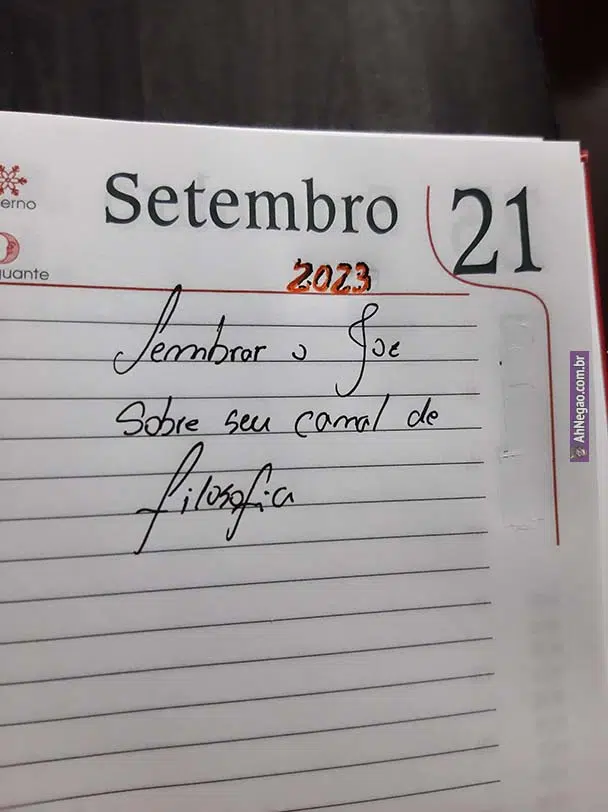 erno
Setembro 21
uante
2023
Lembrar o Joe
Sobre seu canal de
filosofia
AhNegao.com.br